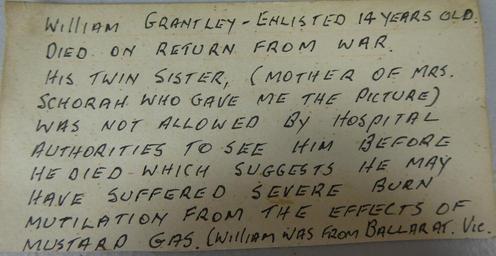 WILLIAM GRANTLEY - ENLISTED 14 YEARS OLD.
DIED ON RETURN FROM WAR.
HIS TWIN SISTER, (MOTHER OF MRS.
SCHORAH WHO GAVE ME THE PICTURE)
WAS NOT ALLOWED BY HOSPITAL
AUTHORITIES TO SEE HIM BEFORE
HE DIED WHICH SUGGESTS HE MAY
HAVE SUFFERED SEVERE BURN
MUTILATION FROM THE EFFECTS OF
MUSTARD GAS. (WILLIAM WAS FROM BALLARAT. VIC.